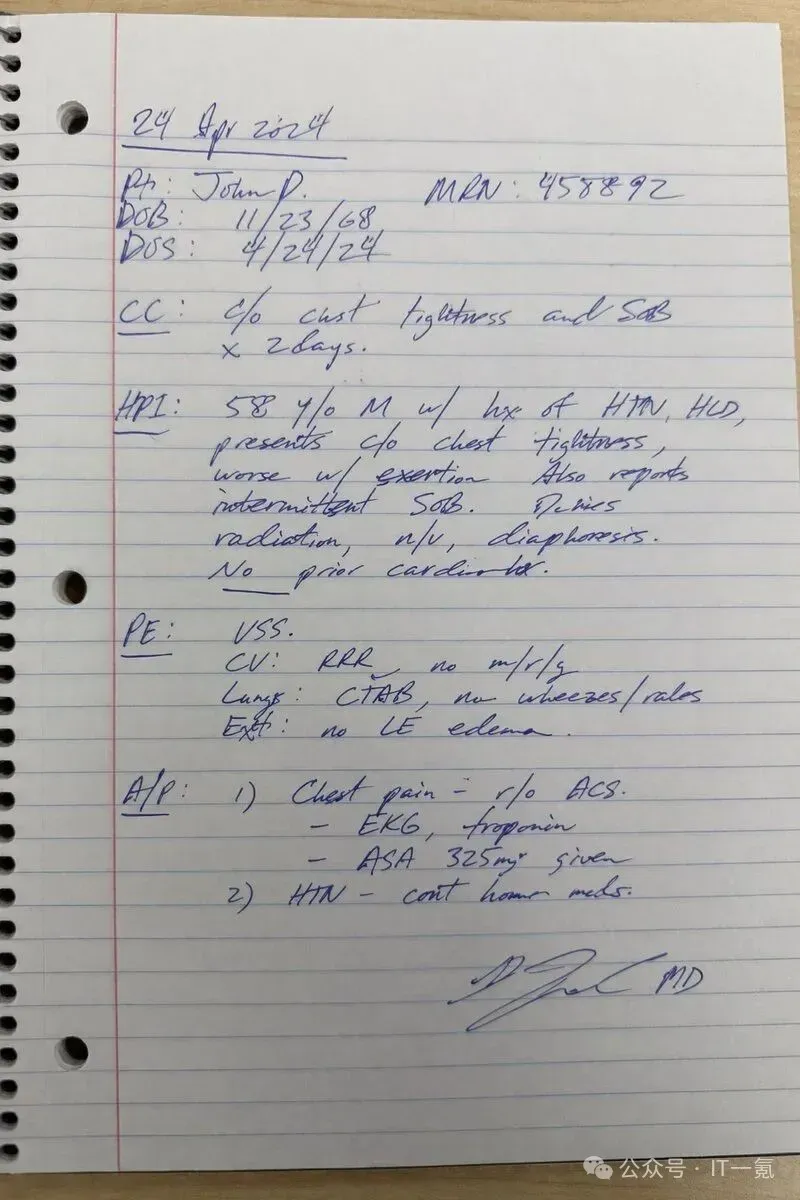 24 Apr 2024
Pt: John D. MRN: 458892
DOB: 11/23/68
DOS: 4/24/24
CC: c/o chest tightness and SOB
x 2 days.
HPI: 58 y/o M w/ hx of HTN, HLD,
presents c/o chest tightness,
worse w/ exertion Also reports
intermittent SOB. Denies
radiation, n/v, diaphoresis.
No prior
PE: VSS.
CV: RRR, no m/r/g
Lungs: CTAB, no wheezes/rales
Ext: no LE edema.
A/P: 1) Chest pain - r/o ACS.
- EKG, troponin
- ASA 325mg given
2) HTN - cont home meds.
MD
公众号·IT一氪